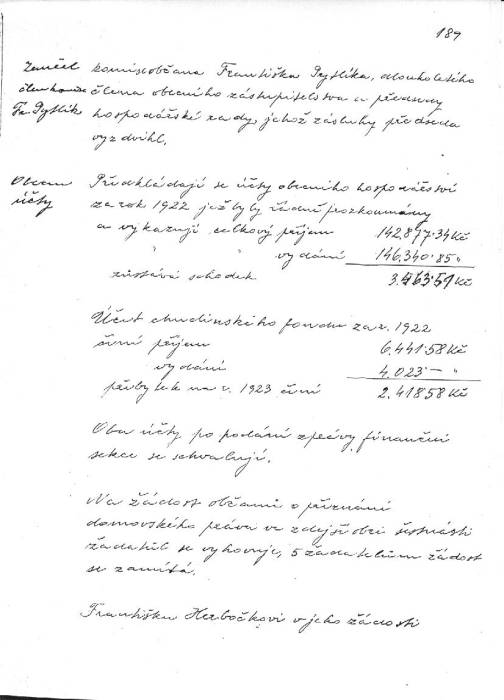 189
Zemřel
člen komise
Fr. Pytlík
komise občana Františka Pytlíka, dlouholetého
člena obecního zastupitelstva a předsedy
hospodářské rady, jehož zásluhy předseda
vyzdvihl.
Obecní
účty
Předkládají se účty obecního hospodářství
za rok 1922 jež byly řádně prozkoumány
a vykazují celkový příjem 142.877·34 Kč
" " vydání 146.340·85 "
zůstává schodek 3.463·51 Kč
Účet chudinského fondu za r. 1922
činí příjem 6.441·58 Kč
vydání 4.023 — "
přebytek na r. 1923 činí 2.418 58 Kč
Oba účty po podání zprávy finanční
sekce se schvalují.
Na žádost občanů o přiznání
domovského práva ve zdejší obci šestnácti
žadatelů se vyhovuje, 5 žadatelům žádost
se zamítá.
Františku Herbočkovi v jeho žádosti